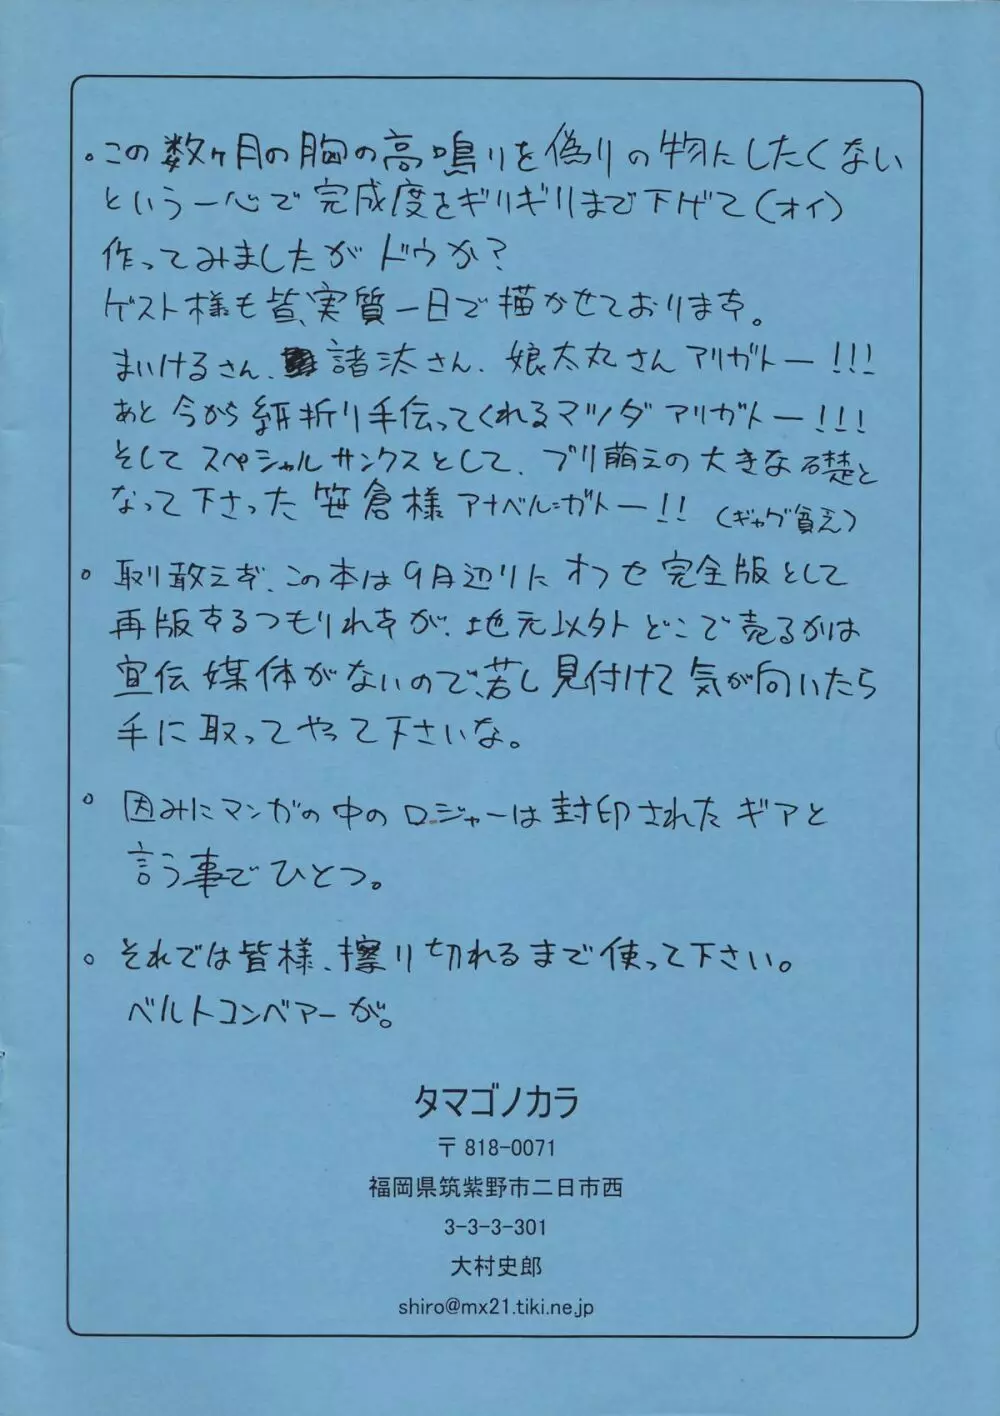 。この数ヶ月の胸の高鳴りを偽りの物にしたくない
という一心で完成度をギリギリまで下げて(オイ)
作ってみましたがドウか?
ゲスト様も皆、実質一日で描かせております。
まいけるさん、諸汰さん、娘太丸さんアリガトー!!!
あと今から紙折り手伝ってくれるマツダアリガトー!!!
そしてスペシャルサンクスとして、ブリ萌えの大きな礎と
なって下さった笹倉様アナベル=ガトー!! (ギャグ貧え)
。取り敢えず、この本は9月辺りにオフセ完全版として
再版するつもりれすが、地元以外どこで売るかは
宣伝媒体がないので、若し見付けて気が向いたら
手に取ってやって下さいな。
。因みにマンガの中のロジャーは封印されたギアと
言う事でひとつ。
。それでは皆様、擦り切れるまで使って下さい。
ベルトコンベアーが。
タマゴノカラ
〒818-0071
福岡県筑紫野市二日市西
3-3-3-301
大村史郎
shiro@mx21.tiki.ne.jp